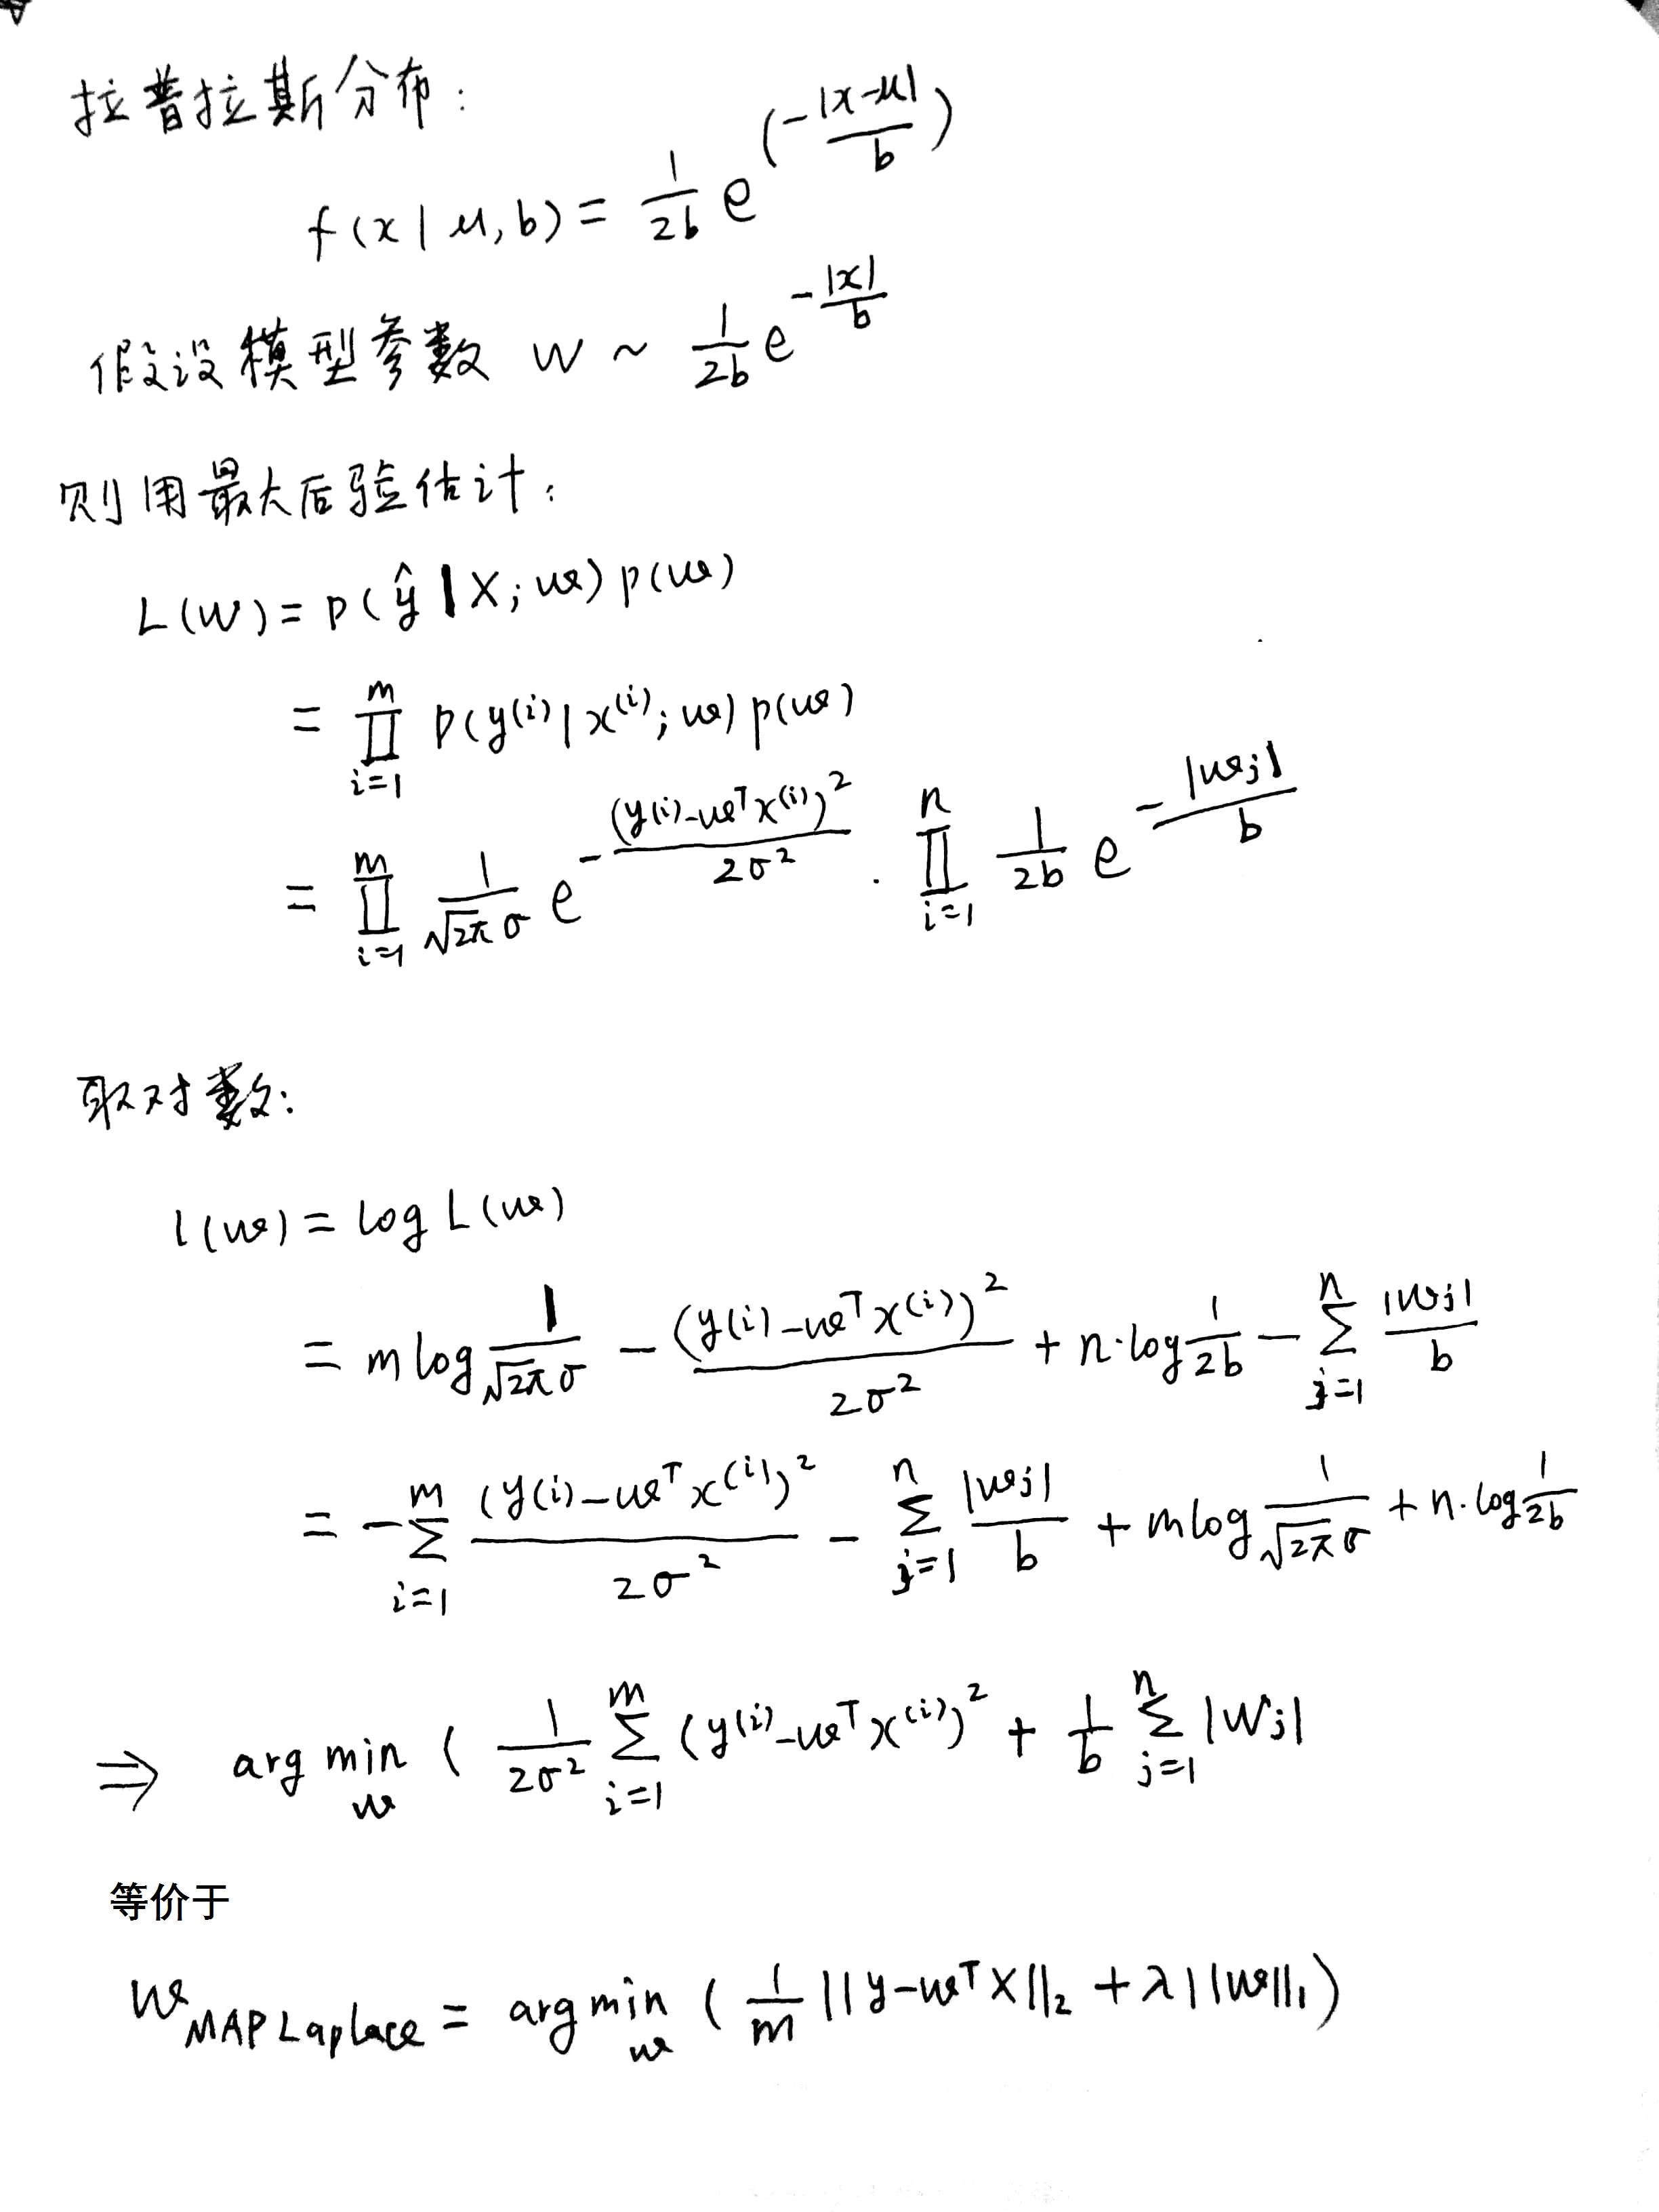 拉普拉斯分布:
f(x|μ,b) = \frac{1}{2b} e^{(-\frac{|x-μ|}{b})}
假设模型参数 w ~ \frac{1}{2b} e^{-\frac{|x|}{b}}
则用最大后验估计:
L(w) = p(ŷ|X;w)p(w)
= \prod_{i=1}^{m} p(y^{(i)}|x^{(i)};w)p(w)
= \prod_{i=1}^{m} \frac{1}{\sqrt{2π}σ} e^{-\frac{(y^{(i)}-w^T x^{(i)})^2}{2σ^2}} · \prod_{i=1}^{n} \frac{1}{2b} e^{-\frac{|w_j|}{b}}
取对数:
l(w) = log L(w)
= m log \frac{1}{\sqrt{2π}σ} - \frac{(y^{(i)}-w^T x^{(i)})^2}{2σ^2} + n·log \frac{1}{2b} - \sum_{j=1}^{n} \frac{|w_j|}{b}
= -\sum_{i=1}^{m} \frac{(y^{(i)}-w^T x^{(i)})^2}{2σ^2} - \sum_{j=1}^{n} \frac{|w_j|}{b} + m log \frac{1}{\sqrt{2π}σ} + n·log \frac{1}{2b}
⇒ arg min_w ( \frac{1}{2σ^2} \sum_{i=1}^{m} (y^{(i)}-w^T x^{(i)})^2 + \frac{1}{b} \sum_{j=1}^{n} |w_j|
等价于
w_{MAP Laplace} = arg min_w ( \frac{1}{m} ||y-w^T X||_2 + λ||w||_1 )